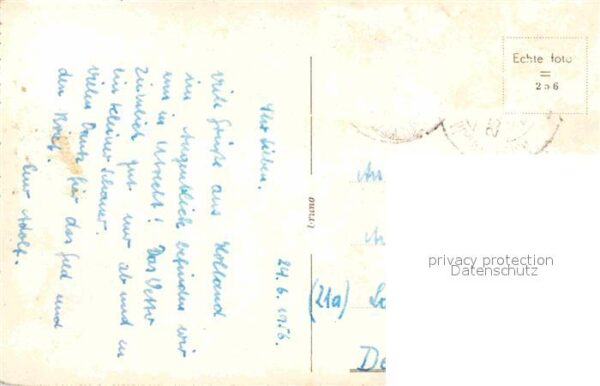 24.6.1956.
Ihr Lieben.
Viele Grüße aus Holland
im Augenblick befinden wir
uns in Utrecht! Das Wetter
ziemlich gut nur ab und zu
ein kleiner Schauer.
Vielen Dank für das Geld und
den Brief.
Euer Adolf.
Echte foto
=
2 6
An
(21a)
De
privacy protection
Datenschutz